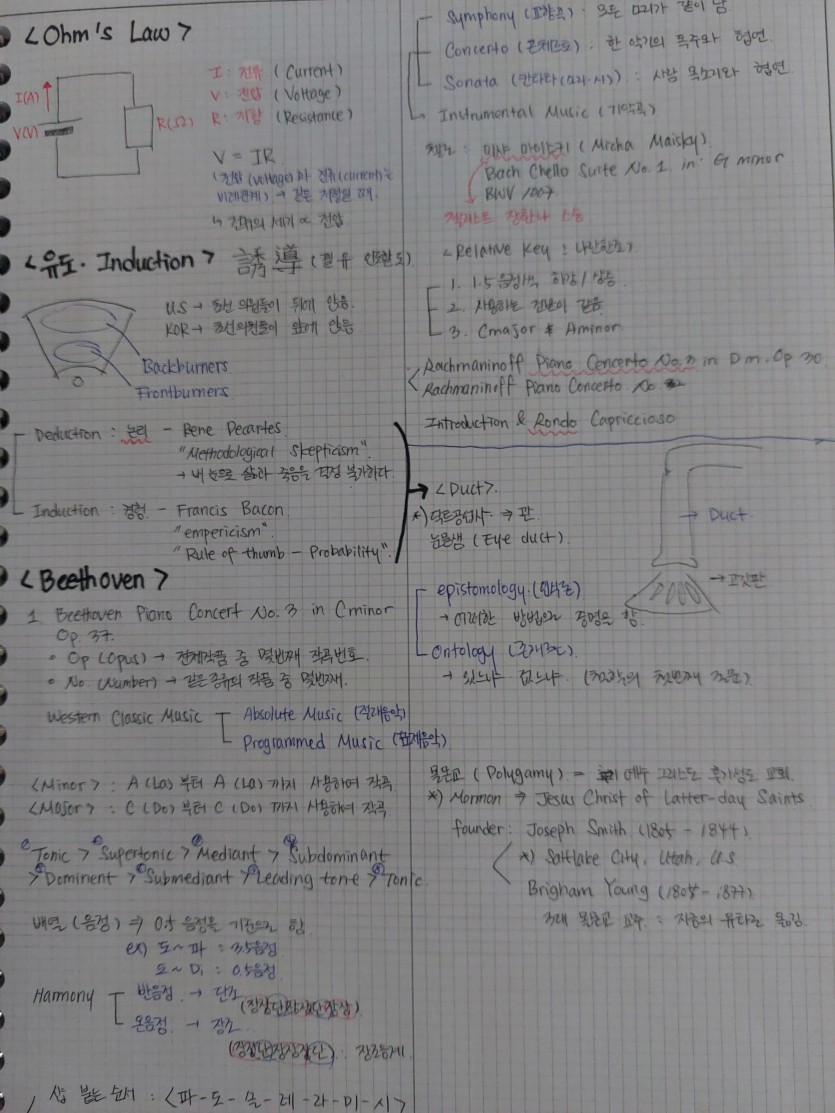 <Ohm's Law>
I(A)
V(V)
R(Ω)
I : 전류 (Current)
V : 전압 (Voltage)
R : 저항 (Resistance)
V = IR
(전압 (voltage)과 전류(current)는
비례관계) → 같은 저항일 때.
↳ 전류의 세기 ∝ 전압
<유도. Induction> 誘導 (꾈 유 인도할 도)
US → 초선 의원들이 뒤에 앉음.
KOR → 초선의원들이 앞에 앉음
Backburners
Frontburners
Deduction : 논리 - Rene Decartes.
"Methodological Skepticism".
→ 내 눈으로 삶과 죽음을 걱정 불가하다.
Induction : 경험 - Francis Bacon.
"empericism".
"Rule of thumb - Probability".
<Beethoven>
1 Beethoven Piano Concert No. 3 in C minor
Op. 37.
• Op (Opus) → 전체작품 중 몇번째 작곡번호.
• No. (Number) → 같은 종류의 작품 중 몇번째.
Western Classic Music
Absolute Music (절대음악)
Programmed Music (표제음악)
<Minor> : A (La) 부터 A (La) 까지 사용하여 작곡
<Major> : C (Do) 부터 C (Do) 까지 사용하여 작곡
① Tonic > ② Supertonic > ③ Mediant > ④ Subdominant
> ⑤ Dominent > ⑥ Submediant > ⑦ Leading tone > ⑧ Tonic
배열 (음정) ⇒ 0.5 음정을 기준으로 함.
ex) 도~파 : 3.5음정
도~Di : 0.5음정
Harmony
반음정 → 단조
온음정 → 장조
장조음계
샵 붙는 순서 : <파-도-솔-레-라-미-시>
Symphony (교향곡) : 모든 소리가 같이 남
Concerto (콘체르토) : 한 악기의 독주와 협연
Sonata (칸타타 (소리·시)) : 사람 목소리와 협연
Instrumental Music (기악곡)
첼로 : 미샤 마이스키 (Mrcha Maisky)
Bach Chello Suite No. 1 in G minor
BWV 1007
첼리스트 장한나 스승
<Relative Key : 나란한조>
1. 1.5 음정씩 하강/상승
2. 사용하는 건반이 같음
3. C major & A minor
Rachmaninoff Piano Concerto No. 3 in D m. Op 30
Rachmaninoff Piano Concerto No 2
Introduction & Rondo Capriccioso
<Duct>.
*) 덕트공사 ⇒ 관
눈물샘 (Eye duct).
→ Duct
epistomology (인식론)
→ 어떠한 방법으로 증명을 함.
Ontology (존재론).
→ 있느냐 없느냐. (철학의 첫번째 질문).
몰몬교 (Polygamy) - 예수 그리스도 후기성도 교회.
*) Mormon ⇒ Jesus Christ of Latter-day Saints
founder : Joseph Smith (1805 - 1844).
*) Saltlake City, Utah, U.S
Brigham Young (1805 - 1877)
몰몬교 교주 : 지금의 유타로 옮김.